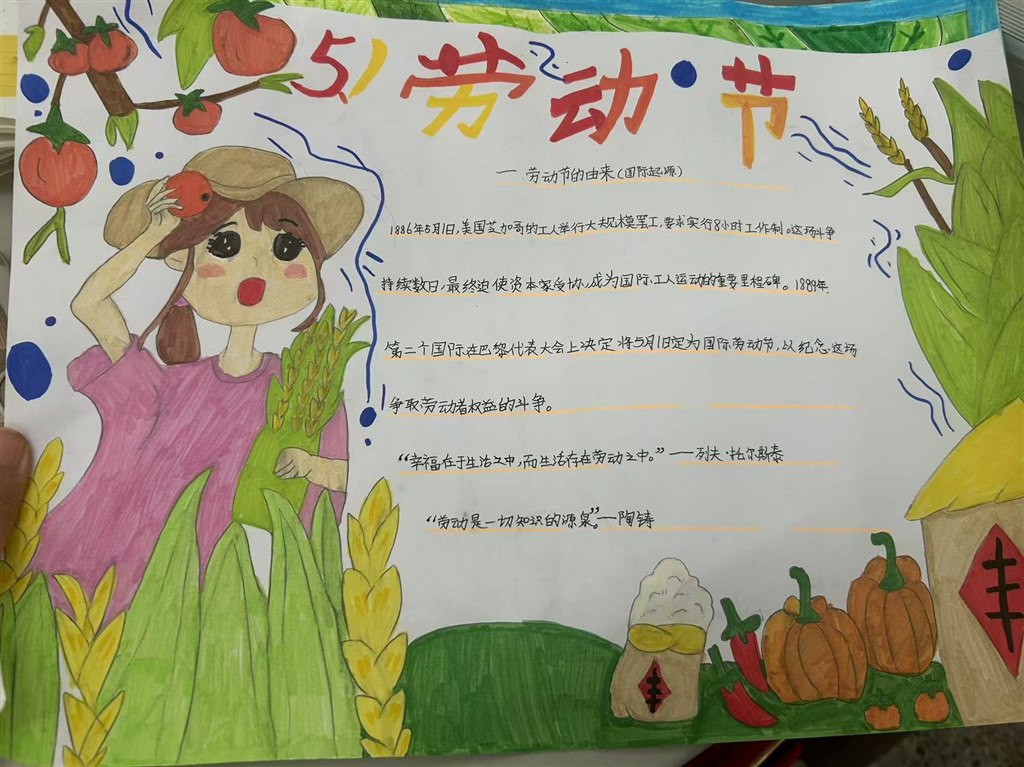 5.1 劳动节
一.劳动节的由来(国际起源)
1886年5月1日,美国芝加哥的工人举行大规模罢工,要求实行8小时工作制。这场斗争
持续数日,最终迫使资本家妥协,成为国际工人运动的重要里程碑。1889年.
第二个国际在巴黎代表大会上决定将5月1日定为国际劳动节,以纪念这场
争取劳动者权益的斗争。
“幸福在于生活之中,而生活存在劳动之中。”——列夫·托尔斯泰
“劳动是一切知识的源泉”。—陶铸
丰
丰